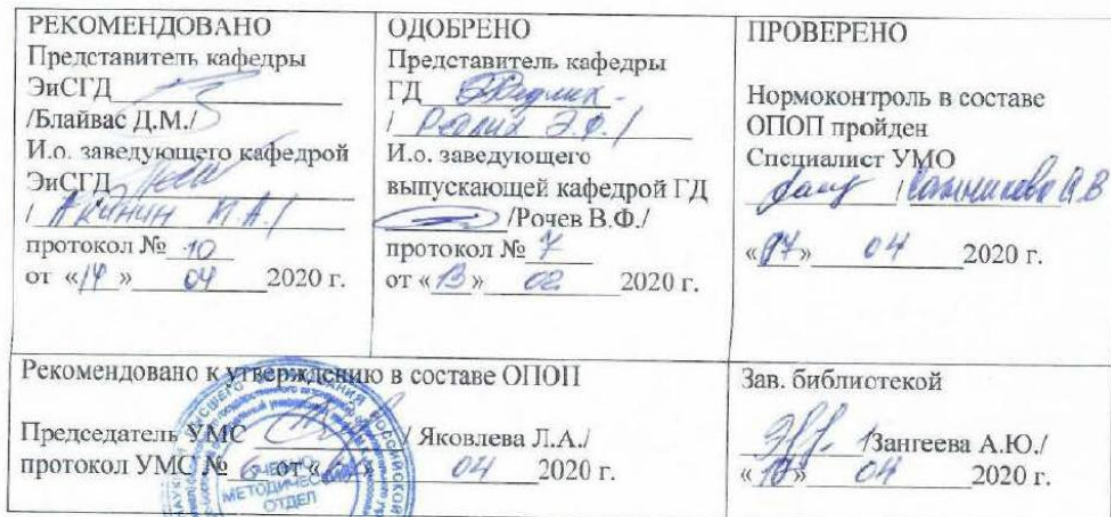 РЕКОМЕНДОВАНО
Представитель кафедры
ЭиСГД
/Блайвас Д.М./
И.о. заведующего кафедрой
ЭиСГД
/ Акинин М.А./
протокол № 10
от «14» 04 2020 г.
ОДОБРЕНО
Представитель кафедры
ГД
/ Редлих Э.Ф./
И.о. заведующего
выпускающей кафедрой ГД
/Рочев В.Ф./
протокол № 7
от «13» 02 2020 г.
ПРОВЕРЕНО
Нормоконтроль в составе
ОПОП пройден
Специалист УМО
«17» 04 2020 г.
Рекомендовано к утверждению в составе ОПОП
Председатель УМС / Яковлева Л.А./
протокол УМС № 6 от « » 04 2020 г.
УЧЕБНО
МЕТОДИЧЕСКИЙ
ОТДЕЛ
Зав. библиотекой
/Зангеева А.Ю./
«17» 04 2020 г.